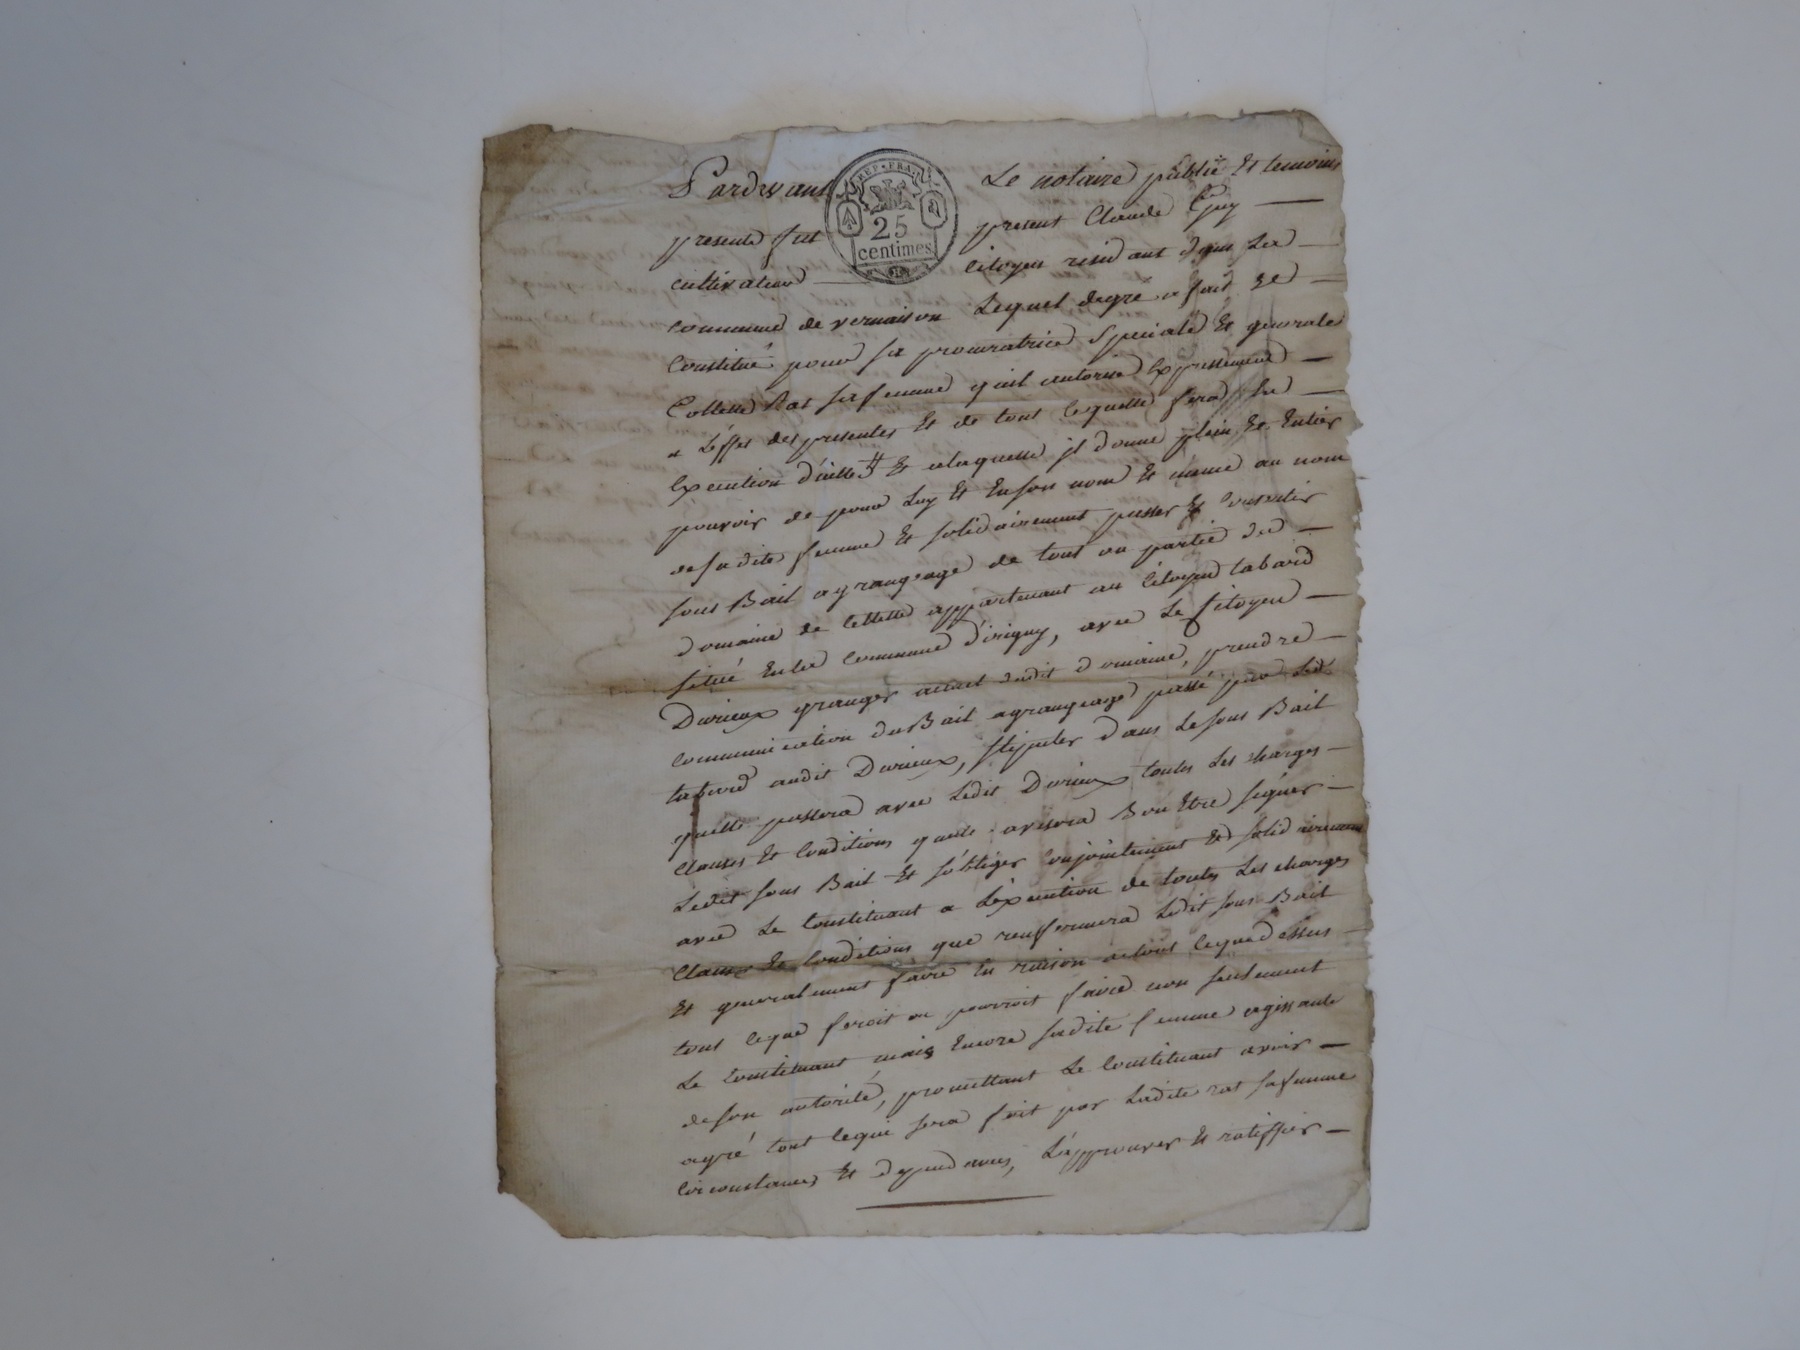 Pardevant Le notaire public Et temoins
REP. FRA.
25
centimes
presents fut present Claude Guy
cultivateur Citoyen residant dans La
commune de vernaison Lequel degré a fait Et
Constitué pour sa procuratrice Speciale Et generale
Collette Rat sa femme quil autorise Expressement
a L'effet des presentes Et de tout Cequelle fera En
Execution d'icelles Et alaquelle jl donne plein Et Entier
pouvoir de pour Luy Et Enson nom Et meme au nom
desadite femme Et solidairement passer Et Consentir
sous Bail agrangeage de tout ou partie du
domaine de appartenant au Citoyen tabard
situé Enla Commune d'irigny, avec Le Citoyen
Durieux granger actuel dudit domaine, prendre
Communication du Bail agrangeage passé par Led.
tabard audit Durieux, stipuler dans Lesous Bail
quelle passera avec Ledit Durieux toutes Les charges
Clauses Et Conditions quelle avisera Bon Etre signer
Ledit sous Bail Et s'obliger Conjointement Et solidairement
avec Le Constituant a L'Execution de toutes Les charges
Clauses Et Conditions que renfermera Ledit sous Bail
Et generalement faire En raison detout Cequedessus
tout Ceque feroit ou pourroit faire non seulement
Le Constituant mais Encore sadite femme agissante
deson autorité, promettant Le Constituant avoir
agré tout Cequi sera fait par Ladite rat safemme
Circonstances Et dependances, L'approuver Et ratiffier